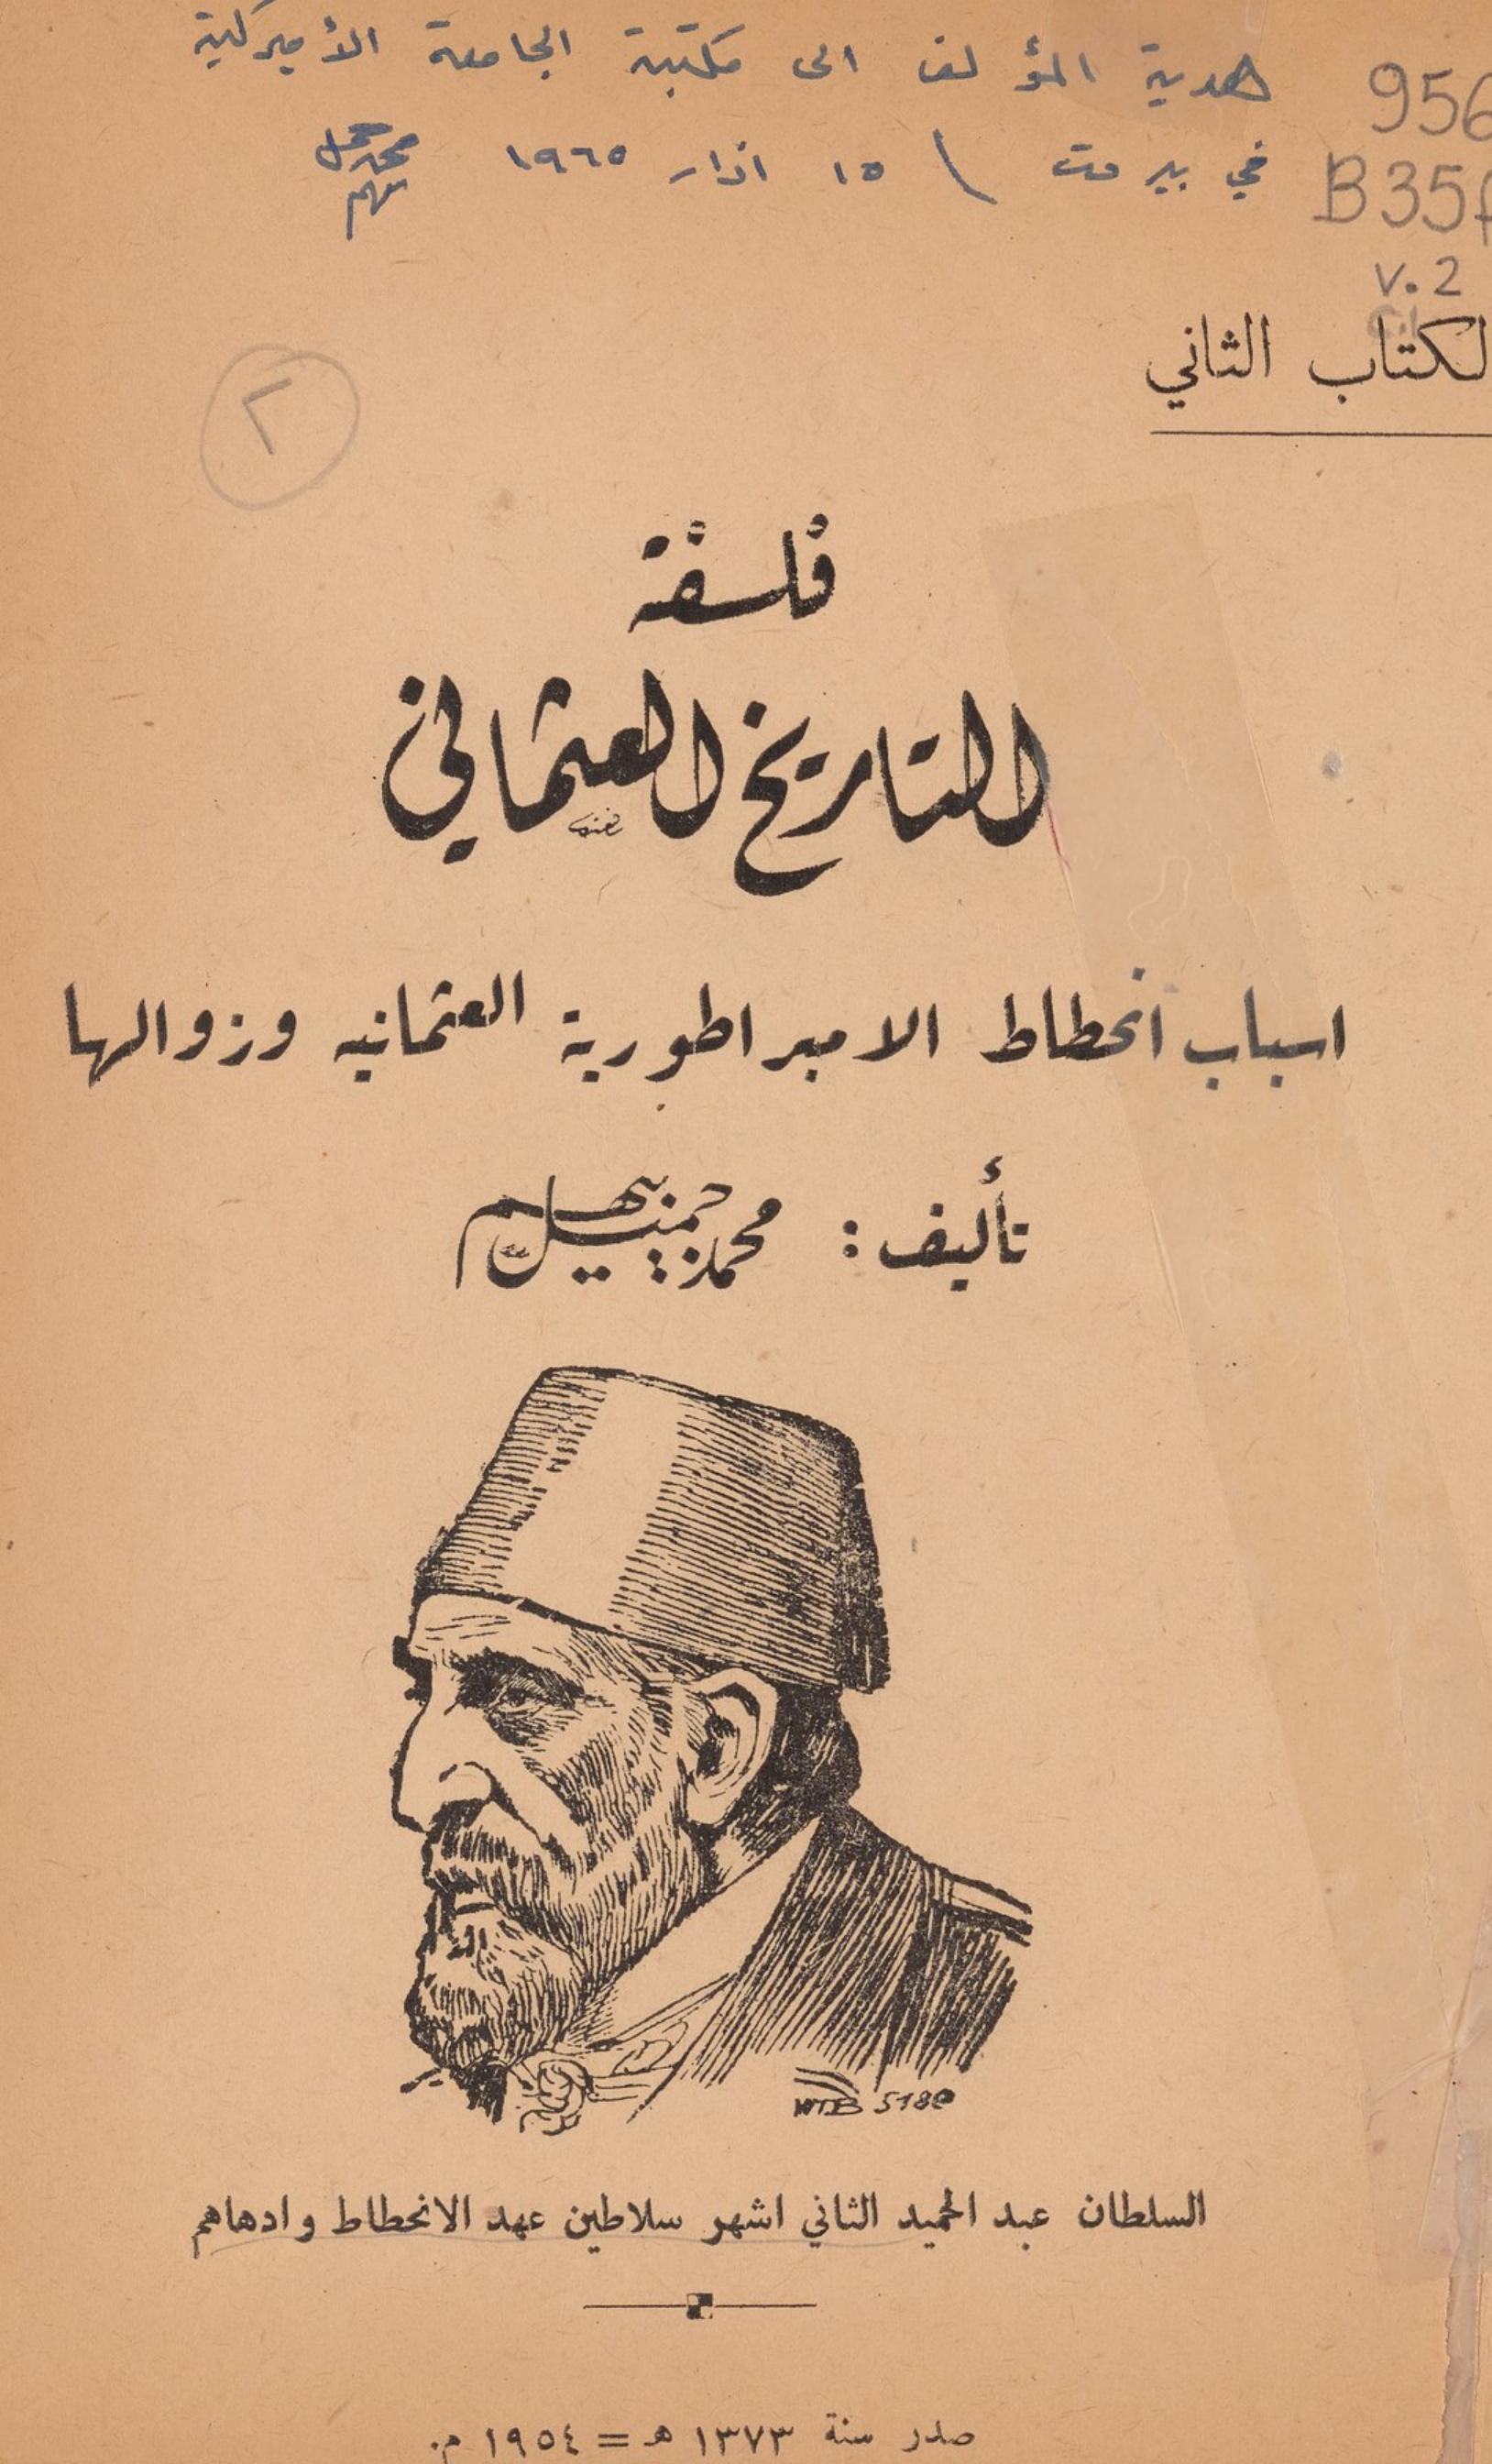 هدية المؤلف الى مكتبة الجامعة الأميركية
في بيروت \ ١٥ اذار ١٩٦٥ محمد جميل بيهم
956
B35f
v.2
لكتاب الثاني
٢
فلسفة
التاريخ العثماني
اسباب انحطاط الامبراطورية العثمانيه وزوالها
تأليف : محمد جميل بيهم
WTB 5180
السلطان عبد الحميد الثاني اشهر سلاطين عهد الانحطاط وادهاهم
صدر سنة ١٣٧٣ هـ = ١٩٥٤ م.